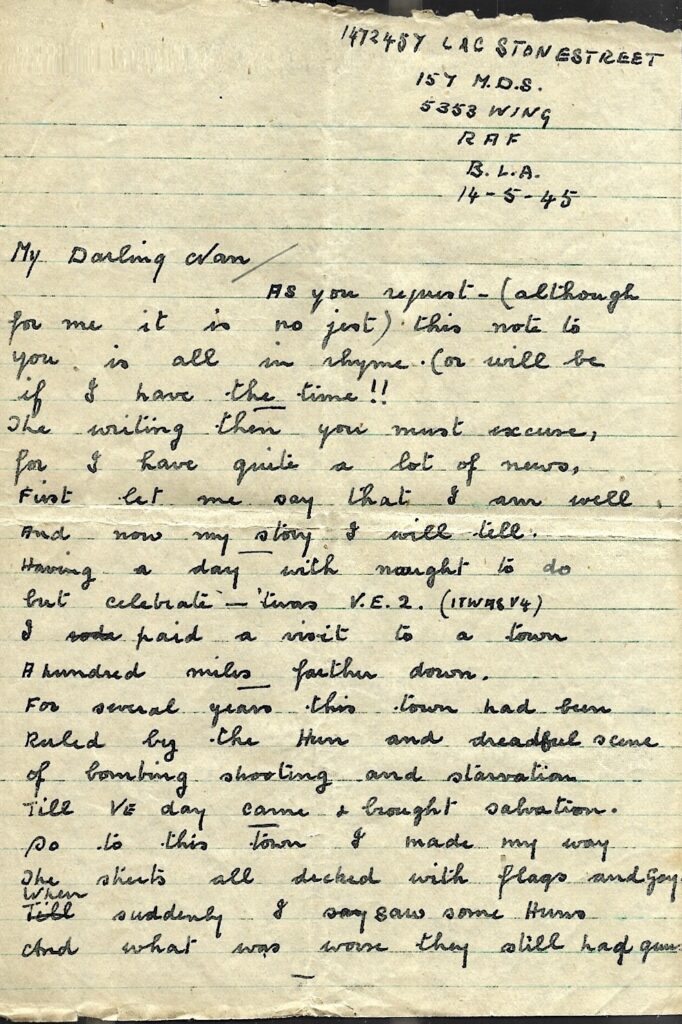 1472457 LAC STONESTREET
157 M.D.S.
5353 WING
RAF
B.L.A.
14-5-45
My Darling Nan
As you request - (although
for me it is no jest) this note to
you is all in rhyme. (or will be
if I have the time!!
The writing then you must excuse,
for I have quite a lot of news,
First let me say that I am well.
And now my story I will tell.
Having a day with naught to do
but celebrate - 'twas V.E.2. (IT WAS V4)
I rode paid a visit to a town
A hundred miles farther down.
For several years this town had been
Ruled by the Hun and dreadful scene
of bombing shooting and starvation
Till VE day came & brought salvation.
So to this town I made my way
The streets all decked with flags and Gay.
When
Till suddenly I say saw some Huns
And what was worse they still had guns